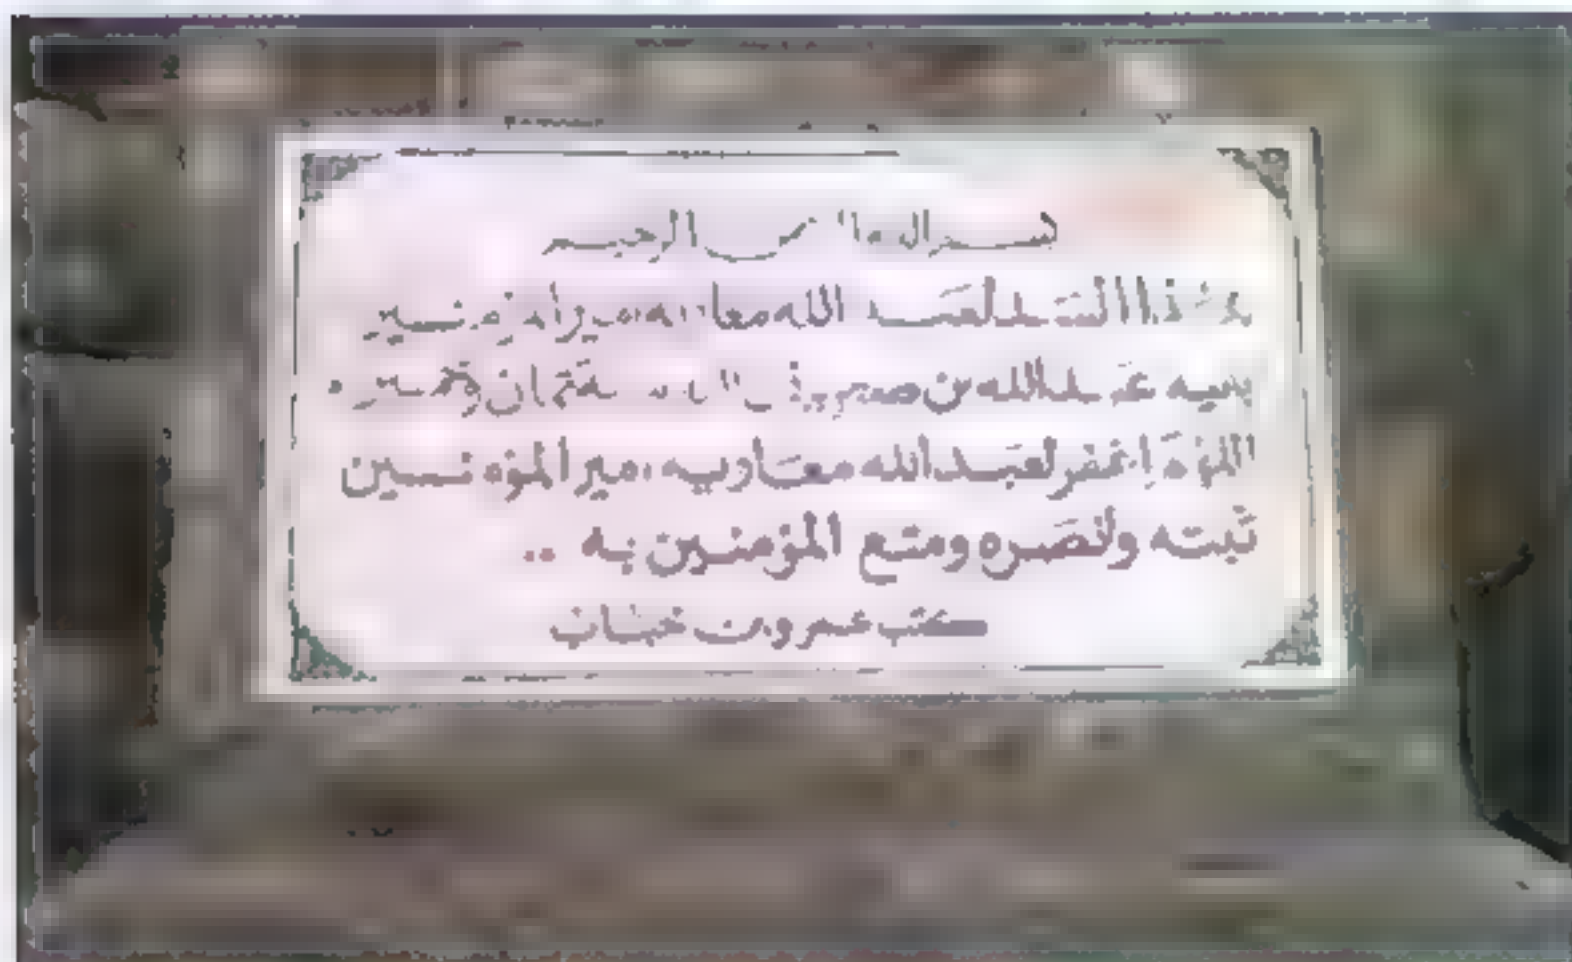 بسم الله الرحمن الرحيم
هذا السد لعبد الله معاوية أمير المؤمنين
بنيه عبد الله بن صخر
اللهم اغفر لعبد الله معاويه امير المؤمنين
ثبته وانصره ومتع المؤمنين به ..
كتب عمرو بن